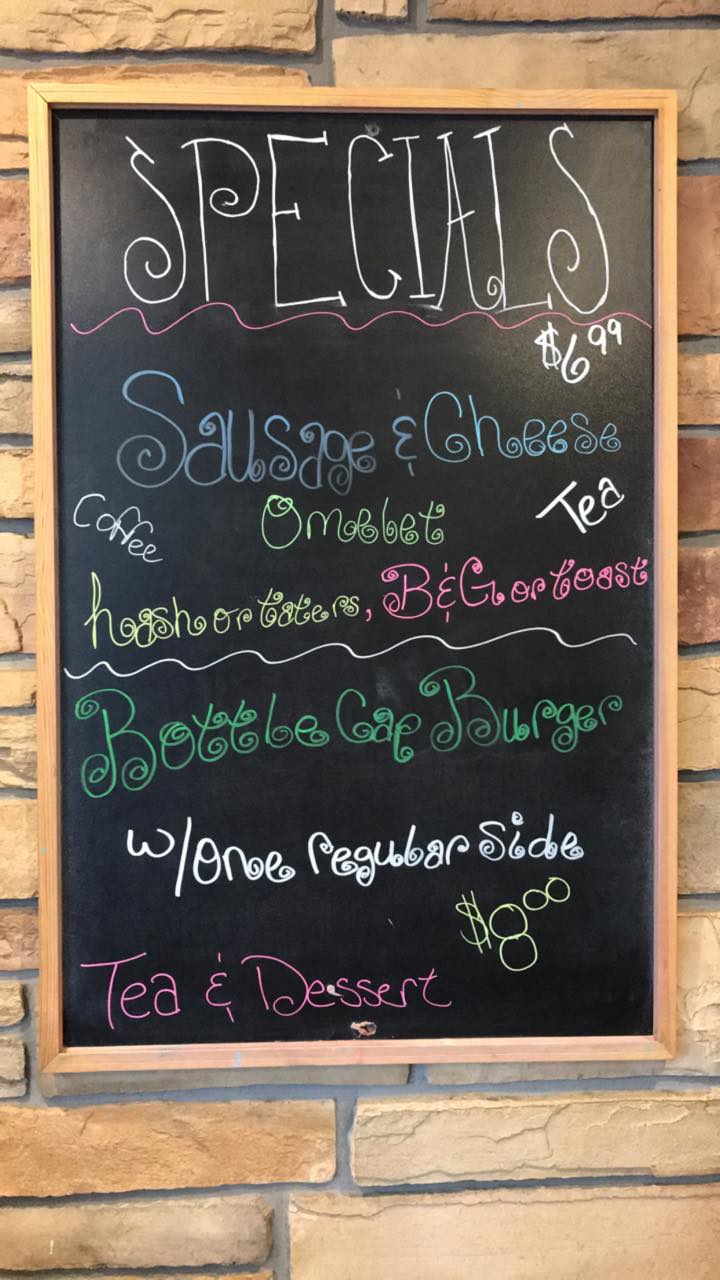 SPECIALS
$6.99
Sausage & Cheese
Coffee Omelet Tea
hash or taters, B&G or toast
Bottle Cap Burger
w/one regular side
$8.00
Tea & Dessert